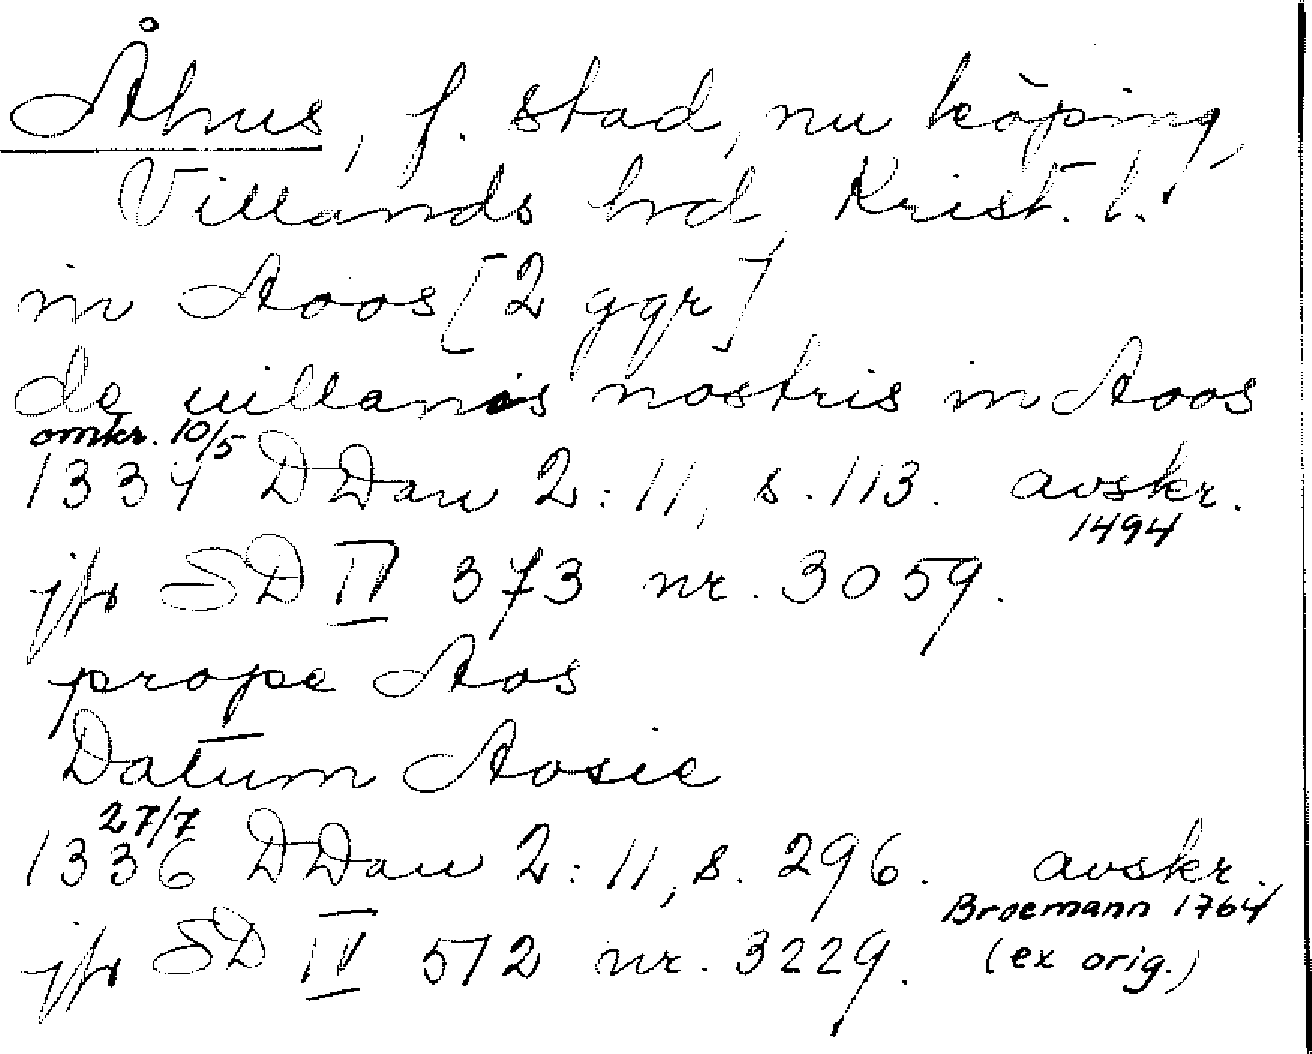 Åhus, f. stad, nu köping,
Villands hd, Krist. l.
in Aoos [2 ggr]
de uillanis nostris in Aoos
omkr. 10/5
1334 DDan 2:11, s. 113. avskr.
1494
jfr SD IV 373 nr. 3059.
prope Aos
Datum Aosie
27/7
1336 DDan 2:11, s. 296. avskr.
Broemann 1764
jfr SD IV 512 nr. 3229. (ex orig.)